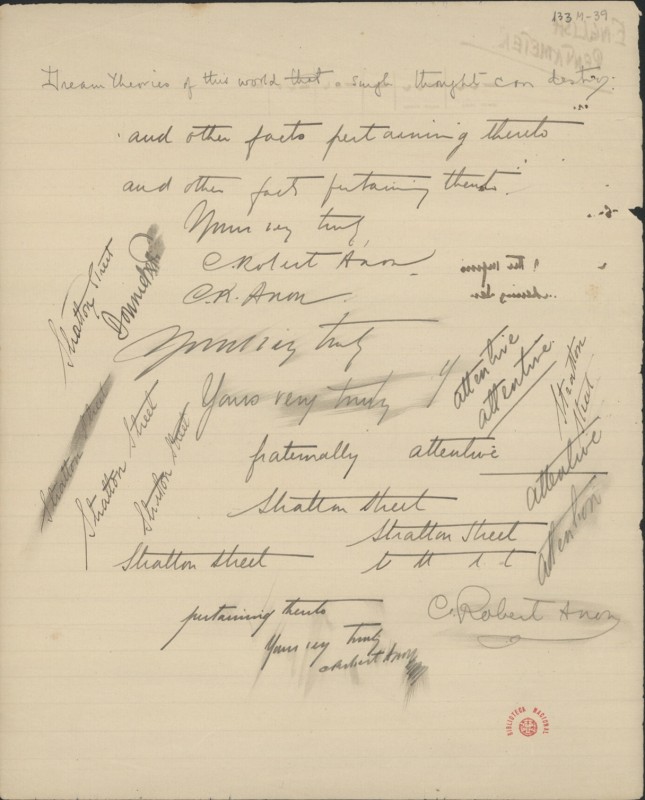 133 M-39
ENGLISH
PENTAMETER
Dream theories of this world that a single thought can destroy.
and other facts pertaining thereto
and other facts pertaining thereto.
Yours very truly
C. Robert Anon
C.R. Anon.
Stratton Street
Yours very truly
attentive
attentive
Stratton Street
Yours very truly
fraternally attentive
attentive
Stratton Street
Stratton Street
Stratton Street
Stratton Street
Stratton Street
attention
Stratton Street
t tt t t
pertaining thereto
C. Robert Anon
Yours very truly
C Robert Anon
BIBLIOTECA NACIONAL